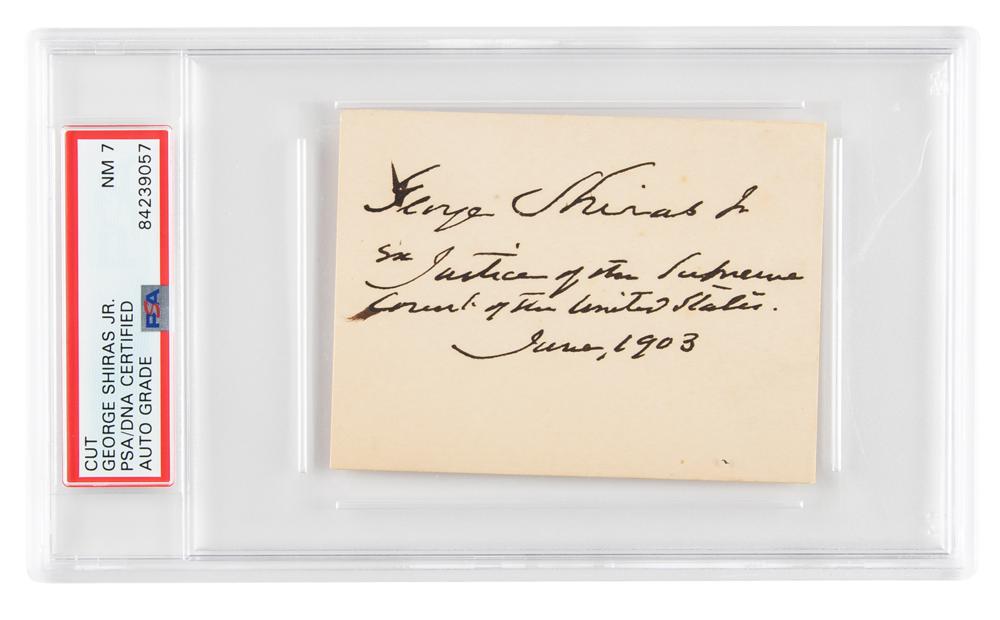 CUT
GEORGE SHIRAS JR.
PSA/DNA CERTIFIED
AUTO GRADE
NM 7
84239057
PSA
George Shiras Jr
Ex Justice of the Supreme
Court of the United States.
June, 1903